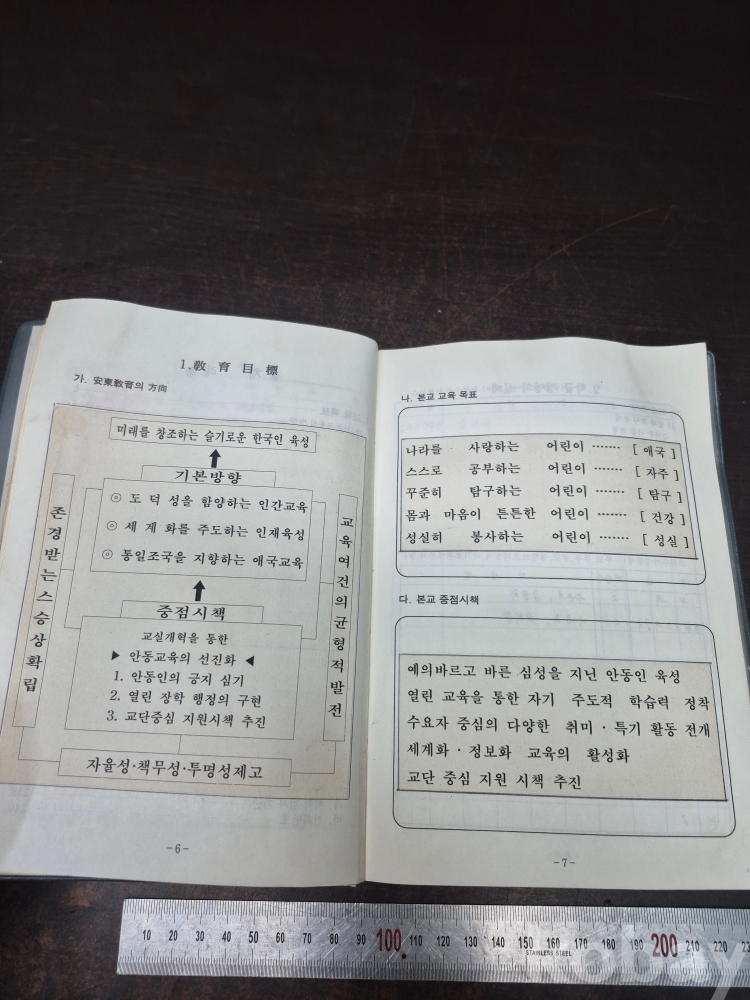 1. 敎育目標
가. 安東敎育의 方向
미래를 창조하는 슬기로운 한국인 육성
기본방향
◎ 도덕성을 함양하는 인간교육
◎ 세계화를 주도하는 인재육성
◎ 통일조국을 지향하는 애국교육
존경받는스승상확립
교육여건의균형적발전
중점시책
교실개혁을 통한
▶ 안동교육의 선진화 ◀
1. 안동인의 긍지 심기
2. 열린 장학 행정의 구현
3. 교단중심 지원시책 추진
자율성·책무성·투명성제고
-6-
나. 본교 교육 목표
나라를 사랑하는 어린이 ······· [ 애국 ]
스스로 공부하는 어린이 ······· [ 자주 ]
꾸준히 탐구하는 어린이 ······· [ 탐구 ]
몸과 마음이 튼튼한 어린이 ······· [ 건강 ]
성실히 봉사하는 어린이 ······· [ 성실 ]
다. 본교 중점시책
예의바르고 바른 심성을 지닌 안동인 육성
열린 교육을 통한 자기 주도적 학습력 정착
수요자 중심의 다양한 취미·특기 활동 전개
세계화·정보화 교육의 활성화
교단 중심 지원 시책 추진
-7-
10 20 30 40 50 60 70 80 90 100 110 120 130 140 150 160 170 180 190 200 210 220
STAINLESS STEEL